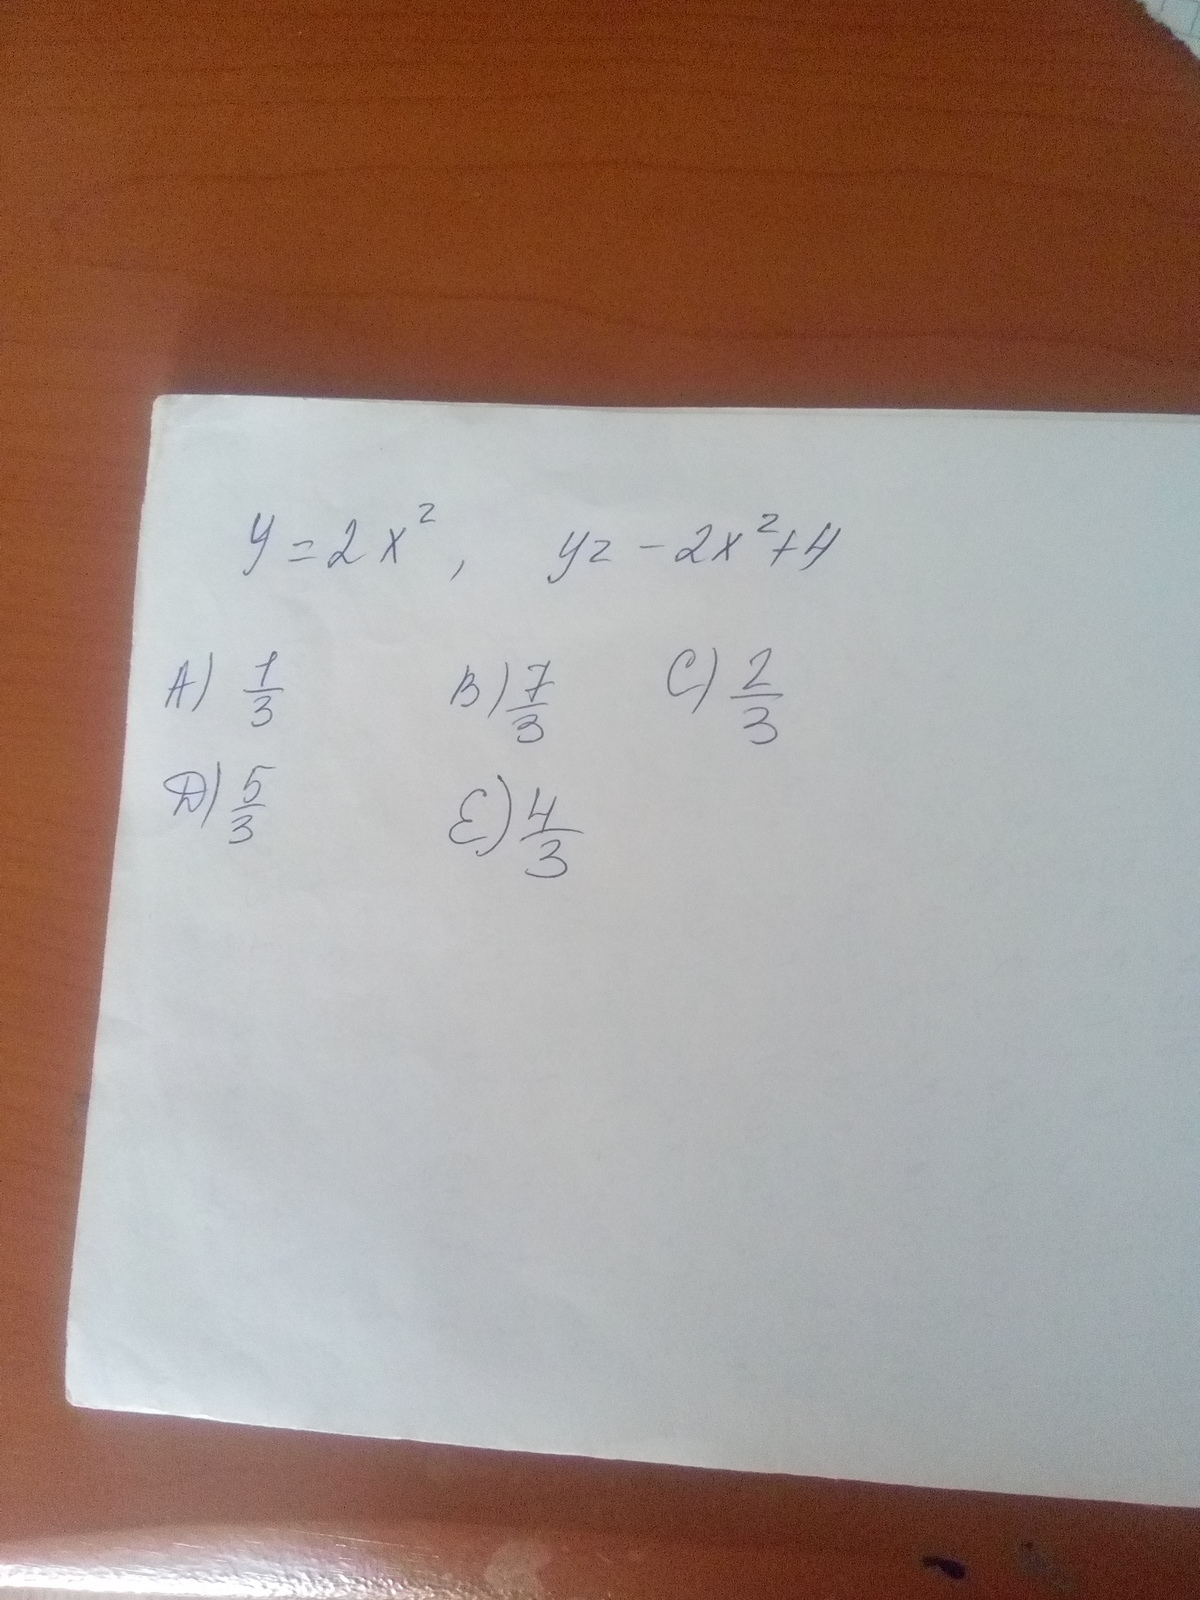 y = 2x², y = -2x²+4
A) 1/3 B) 7/3 C) 2/3
D) 5/3 E) 4/3